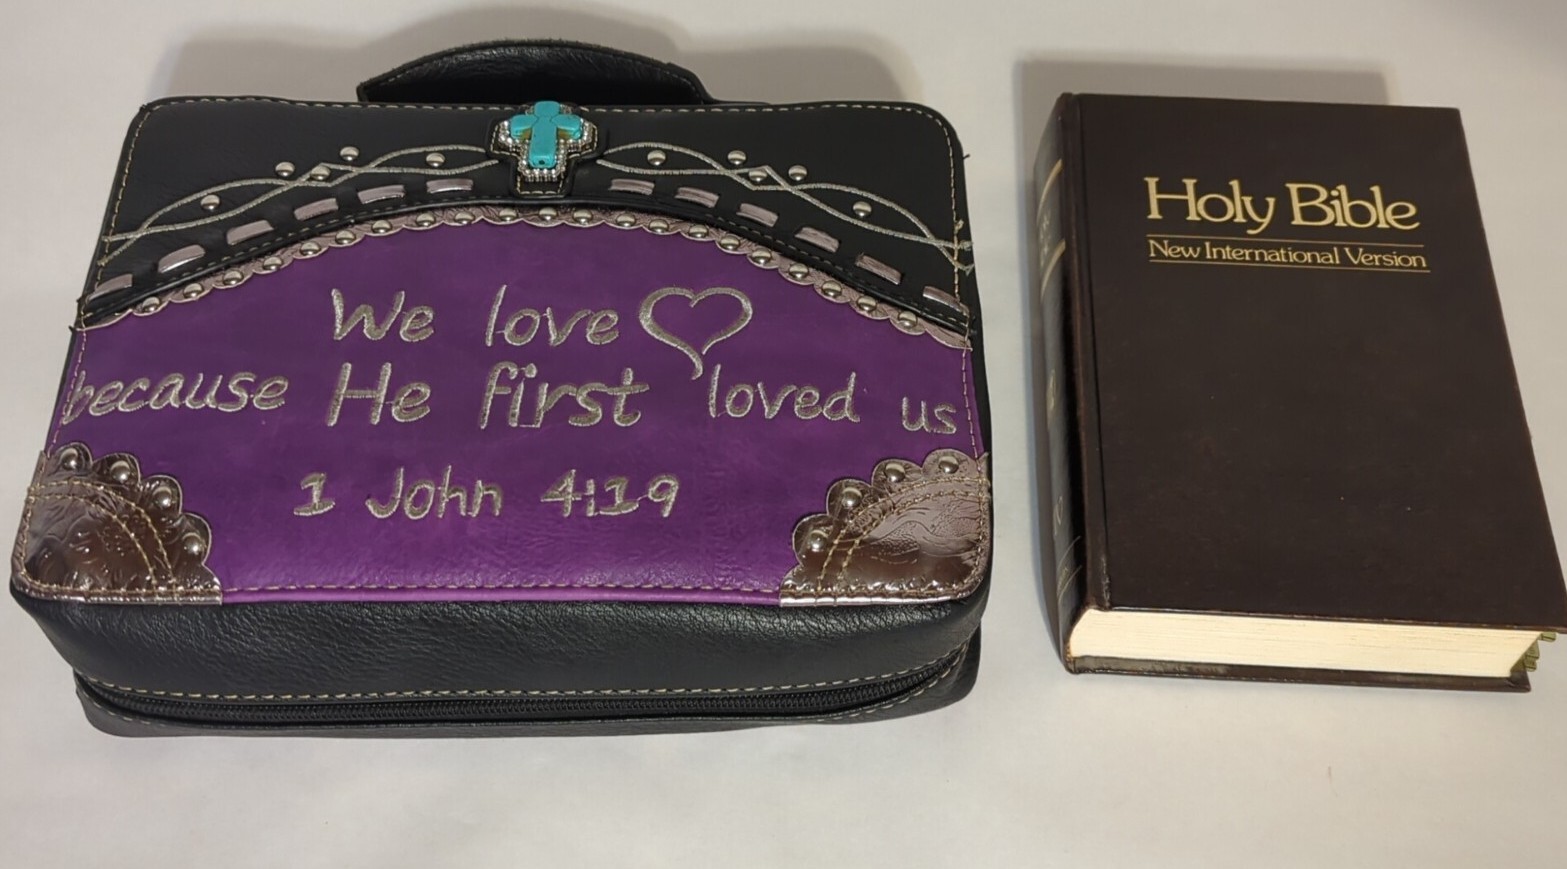 We love
because He first loved us
1 John 4:19
Holy Bible
New International Version